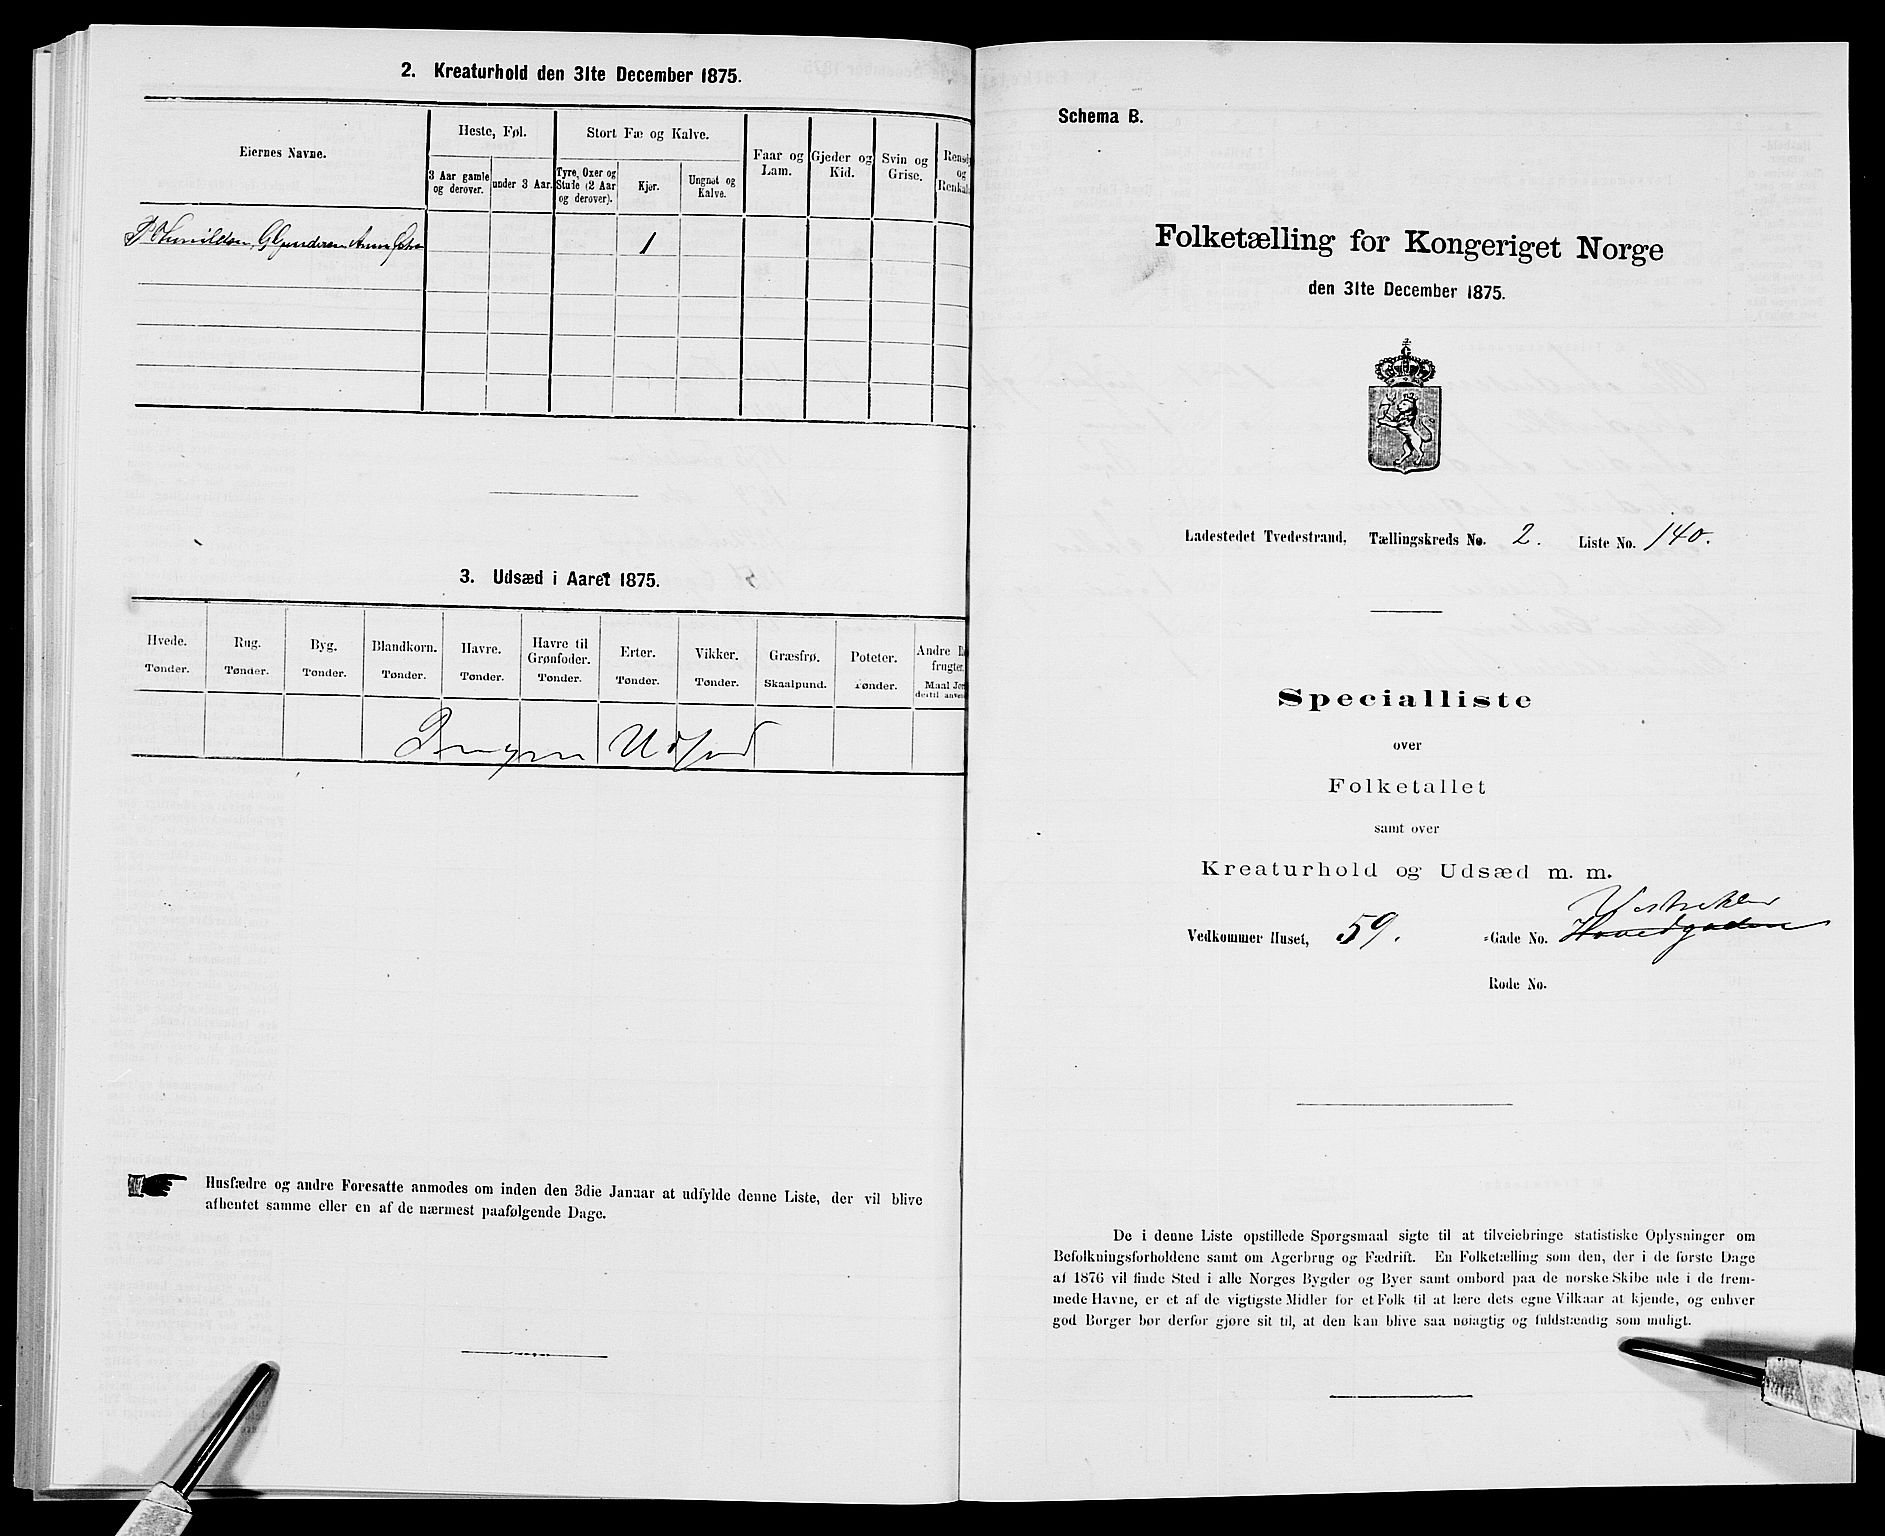 2. Kreaturhold den 31te December 1875.
Eiernes Navne.
Heste, Føl.
Stort Fæ og Kalve.
3 Aar gamle og derover.
under 3 Aar.
Tyre, Oxer og Stude (2 Aar og derover).
Kjør.
Ungnøt og Kalve.
Faar og Lam.
Gjeder og Kid.
Svin og Grise.
Rensd
og
Renkal
1
3. Udsæd i Aaret 1875.
Hvede.
Tønder.
Rug.
Tønder.
Byg.
Tønder.
Blandkorn.
Tønder.
Havre.
Tønder.
Havre til Grønfoder.
Tønder.
Erter.
Tønder.
Vikker.
Tønder.
Græsfrø.
Skaalpund.
Poteter.
Tønder.
Andre
frugter.
Maal Jor
dertil anven
Ingen Udsæd
Husfædre og andre Foresatte anmodes om inden den 3die Januar at udfylde denne Liste, der vil blive
afhentet samme eller en af de nærmest paafølgende Dage.
Schema B.
Folketælling for Kongeriget Norge
den 31te December 1875.
Ladestedet Tvedestrand, Tællingskreds No. 2. Liste No. 140.
Specialliste
over
Folketallet
samt over
Kreaturhold og Udsæd m. m.
Vedkommer Huset, 59. -Gade No. Hovedgaden
Rode No.
De i denne Liste opstillede Spørgsmaal sigte til at tilveiebringe statistiske Oplysninger om
Befolkningsforholdene samt om Agerbrug og Fædrift. En Folketælling som den, der i de første Dage
af 1876 vil finde Sted i alle Norges Bygder og Byer samt ombord paa de norske Skibe ude i de frem-
mede Havne, er et af de vigtigste Midler for et Folk til at lære dets egne Vilkaar at kjende, og enhver
god Borger bør derfor gjøre sit til, at den kan blive saa nøiagtig og fuldstændig som muligt.